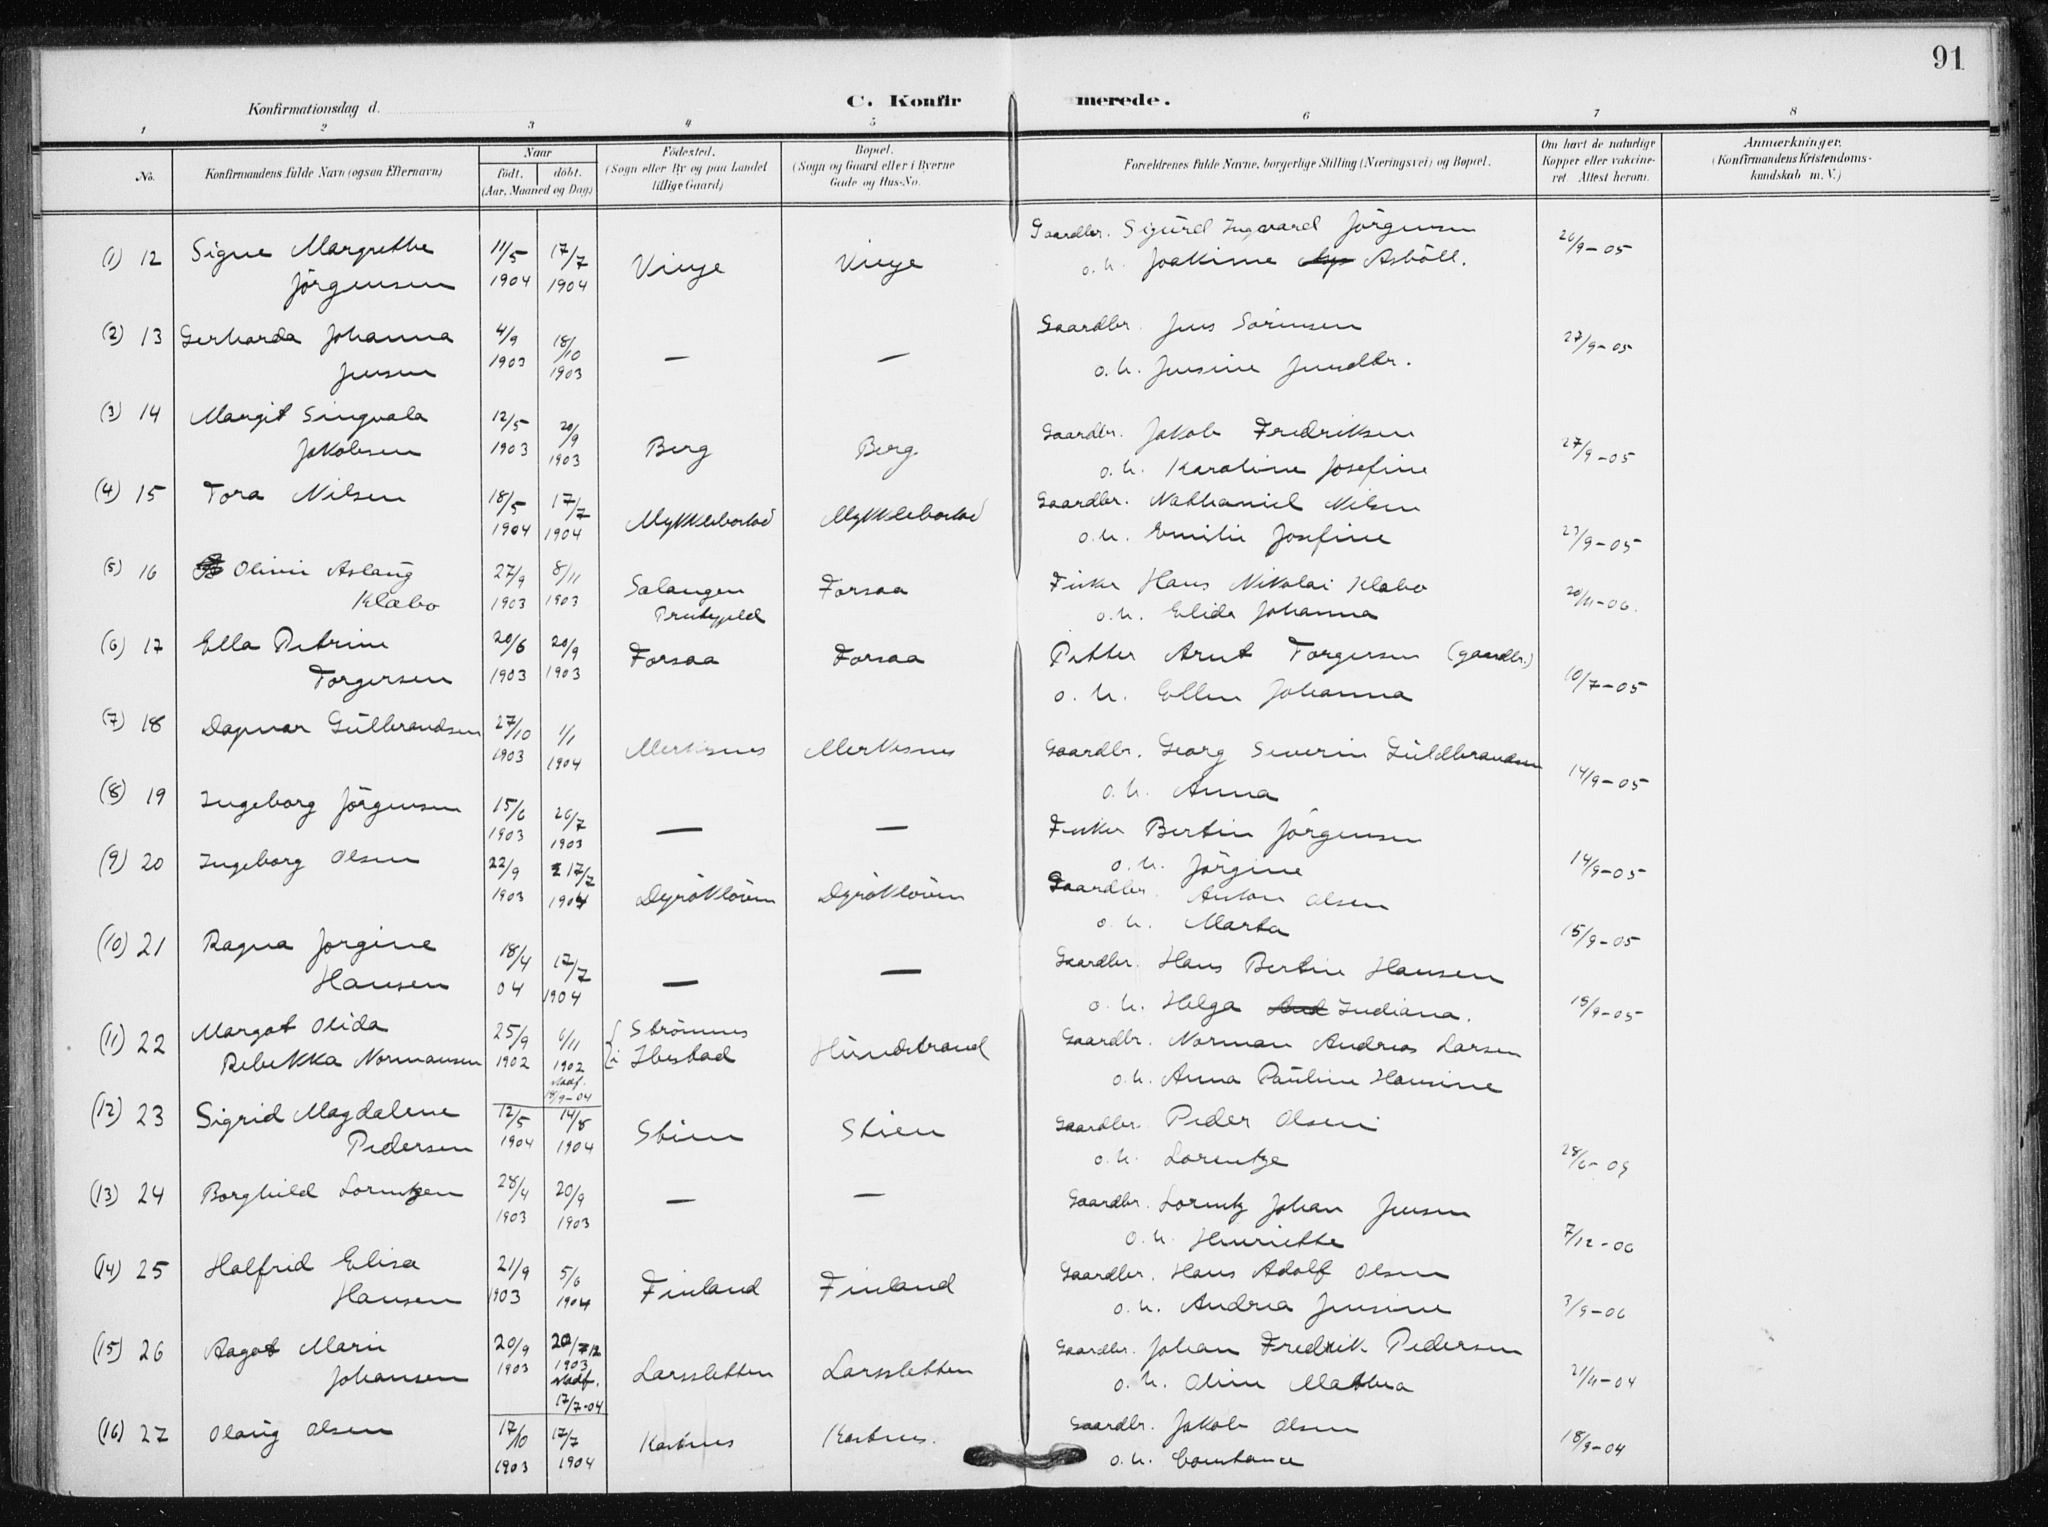 91
Konfirmationsdag d.
C. Konfirmerede.
1 2 3 4 5 6 7 8
No.
Konfirmandens fulde Navn (ogsaa Efternavn)
Naar
födt. döbt.
(Aar, Maaned og Dag)
Födested.
(Sogn eller By og paa Landet
tillige Gaard)
Bopæl.
(Sogn og Gaard eller i Byerne
Gade og Hus-No.
Forældrenes fulde Navne, borgerlige Stilling (Næringsvei) og Bopæl.
Om havt de naturlige
Kopper eller vakcine-
ret Attest herom.
Anmærkninger.
(Konfirmandens Kristendoms-
kundskab m. V.)
(1) 12 Signe Margrethe 11/5 17/7 Vinje Vinje Gaardbr. Sigurd Ingvard Jörgensen 26/9-05
Jörgensen 1904 1904 o. h. Joakime Asböll.
(2) 13 Gerharda Johanna 4/9 18/10 — — Gaardbr. Jens Sörensen 27/9-05
Jensen 1903 1903 o. h. Jensine Jensdtr.
(3) 14 Margit Singvala 12/5 20/9 Berg Berg Gaardbr. Jakob Fredriksen 27/9-05
Jakobsen 1903 1903 o. h. Karoline Josefine
(4) 15 Tora Nilsen 18/5 17/7 Mykklebostad Mykklebostad Gaardbr. Nathaniel Nilsen
1904 1904 o. h. Emilie Josefine 23/9-05
(5) 16 Olivie Aslaug 27/9 8/11 Salangen Forsaa Fisker Hans Nikolai Klæbo 20/11-06.
Klæbo 1903 1903 Prestegjeld o. h. Elida Johanna
(6) 17 Ella Petrine 20/6 20/9 Forsaa Forsaa Petter Arnt Torgersen (gaardbr.)
Torgersen 1903 1903 o. h. Ellen Johanna 10/7-05
(7) 18 Dagmar Gulbrandsen 27/10 1/1 Merkesnes Merkesnes Gaardbr. Georg Severin Guldbrandsen 14/9-05
1903 1904 o. h. Anna
(8) 19 Ingeborg Jörgensen 15/6 26/7 — — Fisker Bertin Jörgensen
1903 1903 o. h. Jörgine 14/9-05
(9) 20 Ingeborg Olsen 22/9 17/7 Dyröklöven Dyröklöven Gaardbr. Anton Olsen
1903 1904 o. h. Marta 15/9-05
(10) 21 Ragna Jorgine 18/4 17/7 — — Gaardbr. Hans Bertin Hansen
Hansen 04 1904 o. h. Helga Indiana. 15/9-05
(11) 22 Margot Olida 25/9 6/11 Strömnes Hundstrand Gaardbr. Norman Andreas Larsen
Rebekka Normansen 1902 1902 i Ibestad o. h. Anna Pauline Hansine
Stadf.
18/9-04
(12) 23 Sigrid Magdalene 12/5 14/8 Stien Stien Gaardbr. Peder Olsen
Pedersen 1904 1904 o. h. Lorentze 28/6-09
(13) 24 Borghild Lorentzen 28/4 20/9 — — Gaardbr. Lorentz Johan Jensen
1903 1903 o. h. Henriette 7/12-06
(14) 25 Halfrid Elisa 21/9 5/6 Finland Finland Gaardbr. Hans Adolf Olsen
Hansen 1903 1904 o. h. Andrea Jensine 3/9-06
(15) 26 Aagot Marie 20/9 20/12 Larssletten Larssletten Gaardbr. Johan Fredrik Pedersen
Johansen 1903 1903 o. h. Oline Mathea 21/11-04
Stadf.
17/7-04
(16) 27 Olaug Olsen 17/10 17/7 Kastnes Kastnes. Gaardbr. Jakob Olsen 18/9-04
1903 1904 o. h. Constance